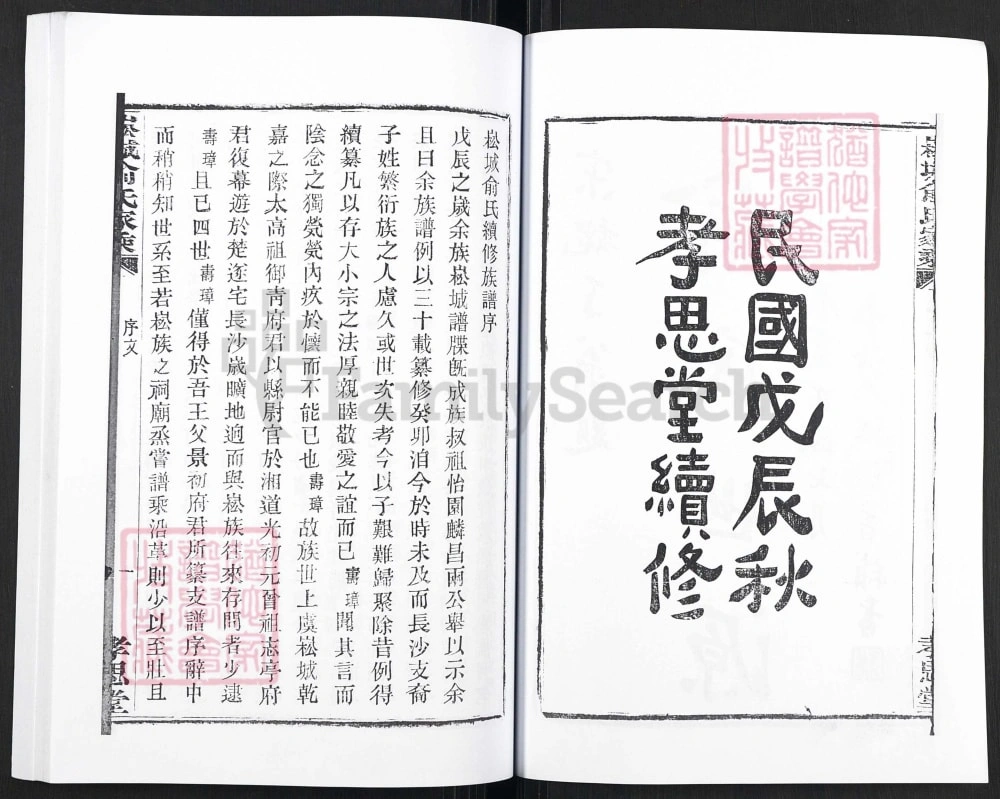 民國戊辰秋
孝思堂續修
崧城俞氏續修族譜序
戊辰之歲余族崧城譜牒旣成族叔祖怡園麟昌兩公舉以示余
且曰余族譜例以三十載纂修癸卯洎今於時未及而長沙支裔
子姓繁衍族之人慮久或世次失考今以子艱難歸聚除昔例得
續纂凡以存大小宗之法厚親睦敬愛之誼而已壽璋聞其言而
陰念之獨煢煢內疚於懷而不能已也壽璋故族世上虞崧城乾
嘉之際太高祖御青府君以縣尉官於湘道光初元曾祖志亭府
君復幕遊於楚遂宅長沙歲曠地逈而與崧族往來存問者少逮
壽璋且已四世壽璋僅得於吾王父景初府君所纂支譜序辭中
而稍稍知世系至若崧族之祠廟烝嘗譜乘沿革則少以至壯且
崧城俞氏家乘
序文
一
孝思堂
FamilySearch